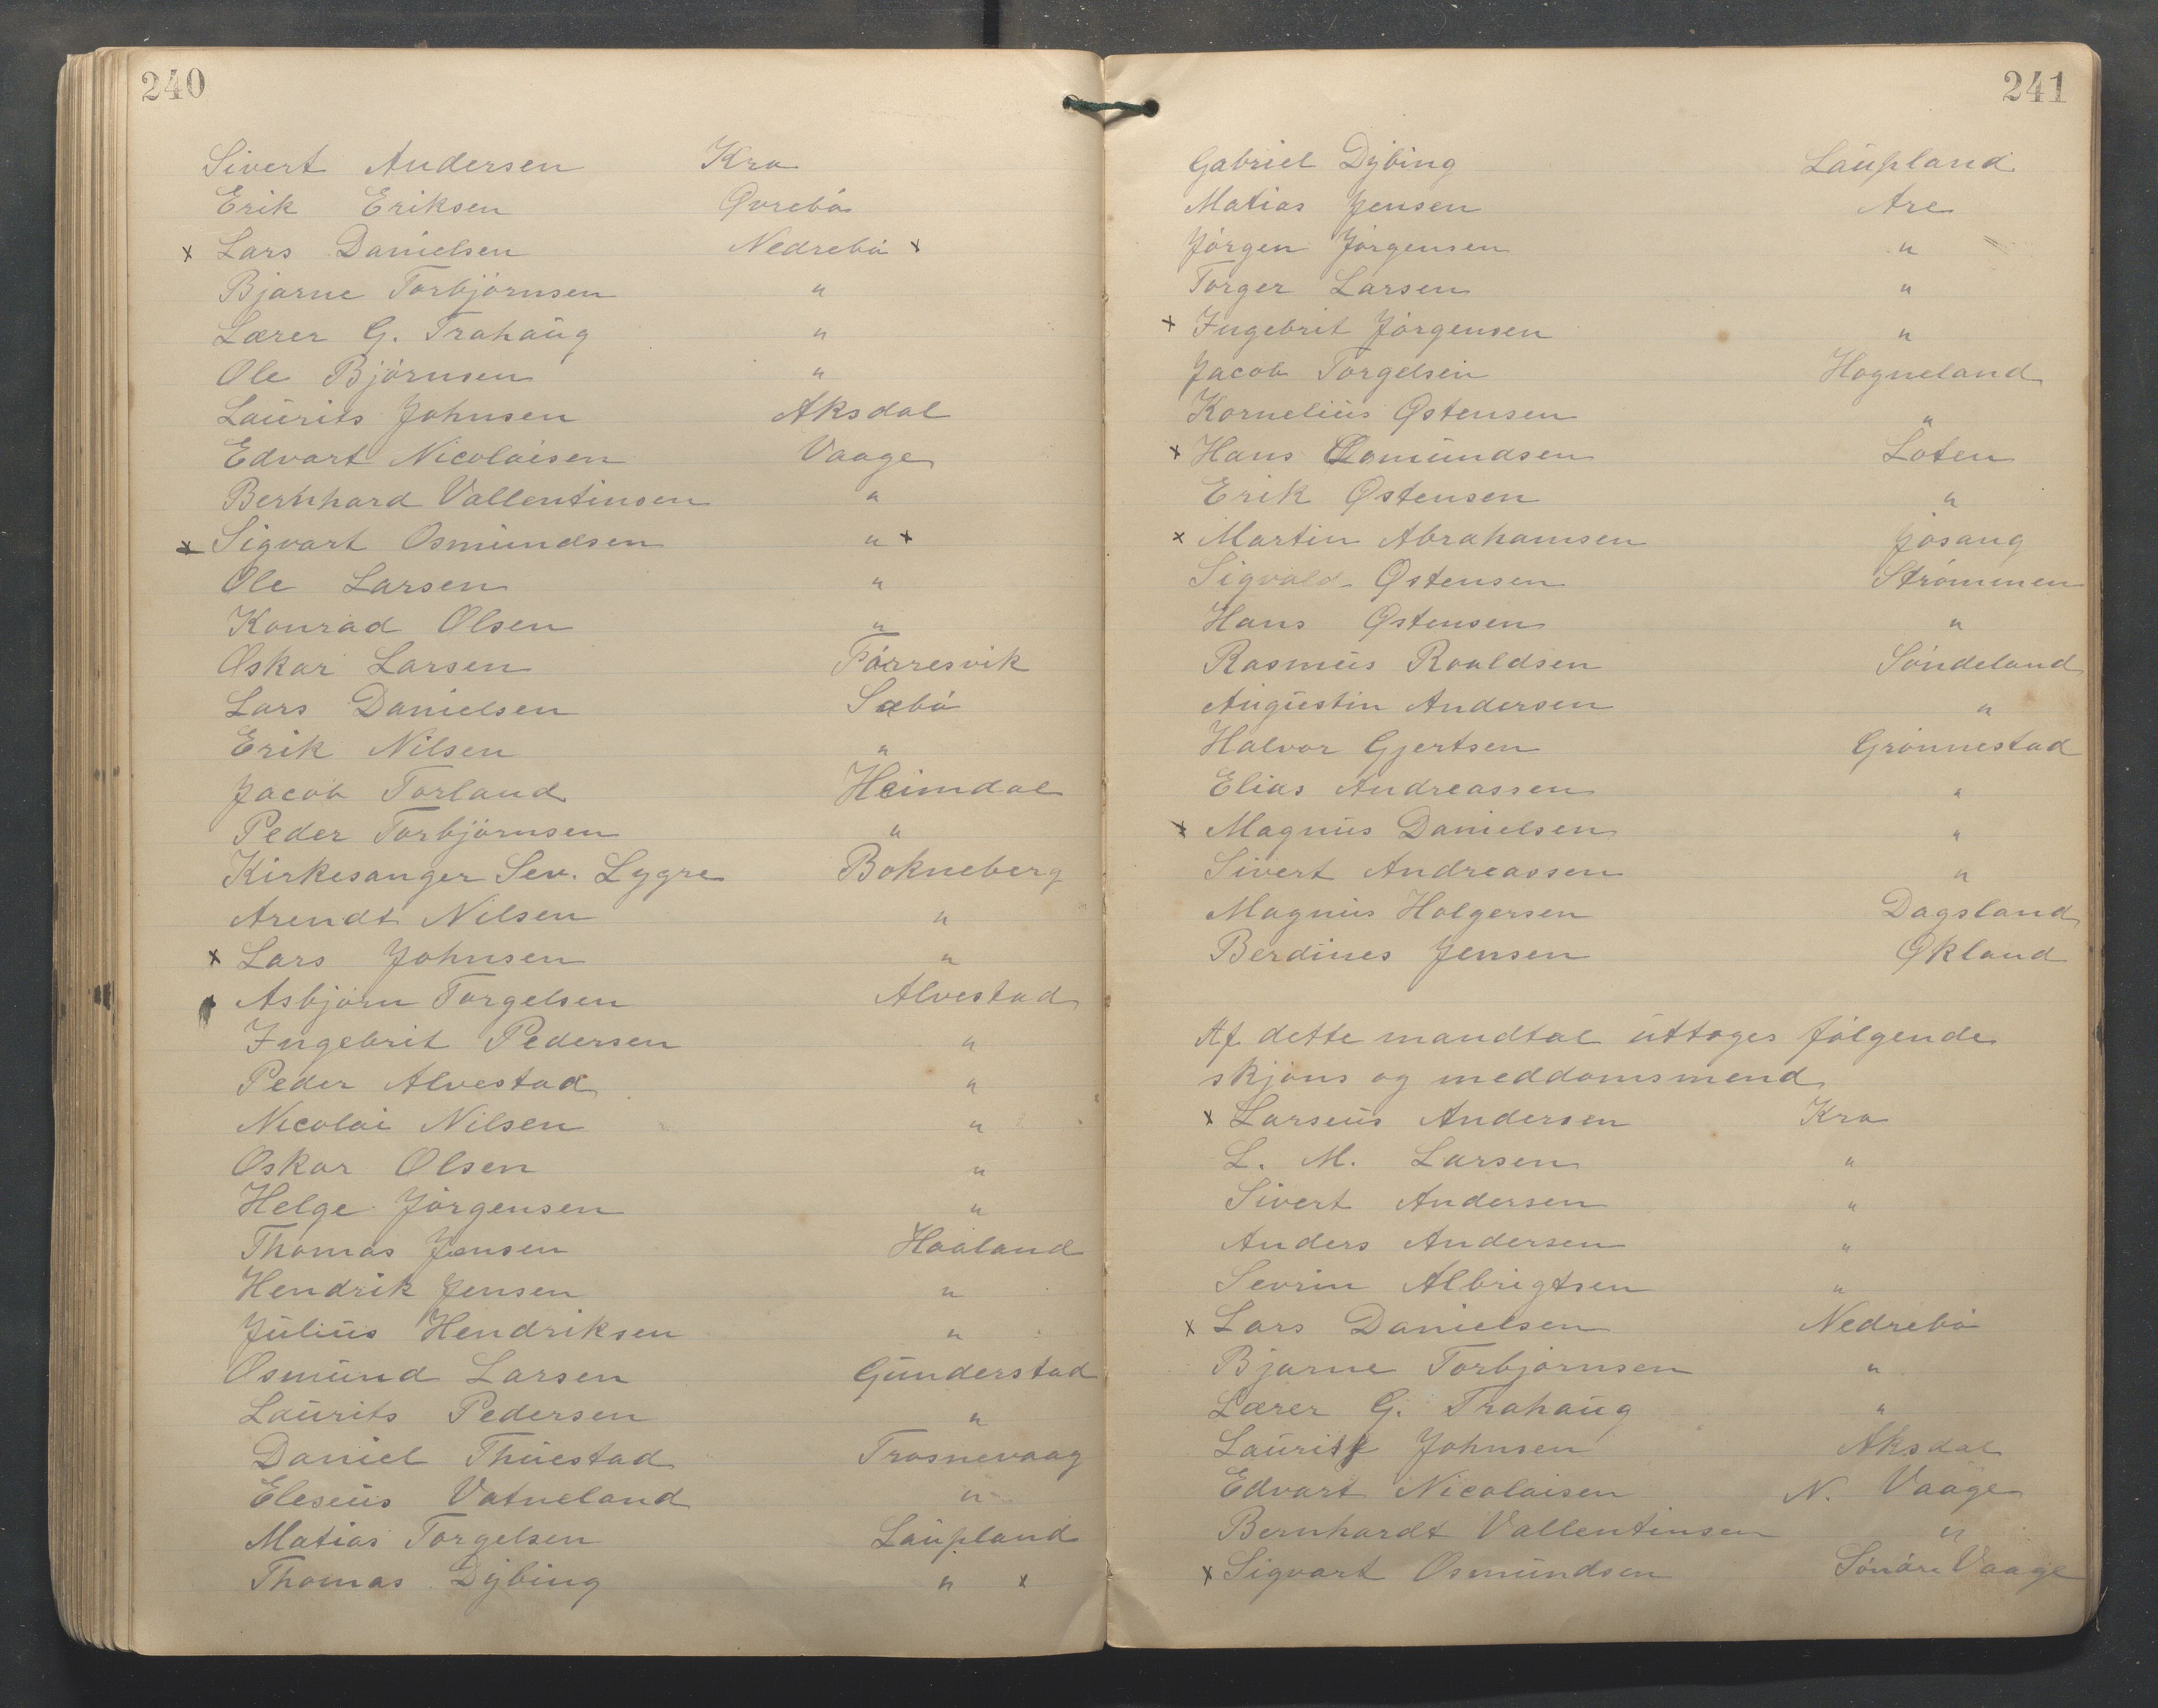 240
Sivert Andersen Kro
Erik Eriksen Øvrebö
x Lars Danielsen Nedrebö x
Bjarne Torbjörnsen "
Lærer G. Trahaug "
Ole Björnsen "
Laurits Johnsen Aksdal
Edvart Nicolaisen Vaage
Bernhard Vallentinsen "
x Sigvart Osmundsen " x
Ole Larsen "
Konrad Olsen "
Oskar Larsen Förresvik
Lars Danielsen Sæbö
Erik Nilsen "
Jacob Torland Heimdal
Peder Torbjörnsen "
Kirkesanger Sev. Lygre Bokneberg
Arendt Nilsen "
x Lars Johnsen "
Asbjörn Torgelsen Alvestad
Ingebrit Pedersen "
Peder Alvestad "
Nicolai Nilsen "
Oskar Olsen "
Helge Jörgensen "
Thomas Jensen Haaland
Hendrik Jensen "
Julius Hendriksen "
Osmund Larsen Gunderstad
Laurits Pedersen "
Daniel Thuestad Trosnevaag
Eleseus Vatneland "
Matias Torgelsen Laupland
Thomas Dybing " x
241
Gabriel Dybing Laupland
Matias Jensen Are
Jörgen Jörgensen "
Torger Larsen "
x Ingebrit Jörgensen "
Jacob Torgelsen Hogneland
Kornelius Østensen "
x Hans Osmundsen Loten
Erik Østensen "
x Martin Abrahamsen Jösang
Sigvald Østensen Strömmen
Hans Østensen "
Rasmus Roaldsen Söndeland
Augustin Andersen "
Halvor Gjertsen Grönnestad
Elias Andreassen "
x Magnus Danielsen "
Sivert Andreassen "
Magnus Holgersen Dagsland
Berdines Jensen Økland
Af dette mandtal uttages fölgende
skjöns og meddomsmend
x Larseus Andersen Kro
L. M. Larsen "
Sivert Andersen "
Anders Andersen "
Sevrin Albrigtsen "
x Lars Danielsen Nedrebö
Bjarne Torbjörnsen "
Lærer G. Trahaug "
Laurits Johnsen Aksdal
Edvart Nicolaisen N. Vaage
Bernhardt Vallentinsen "
x Sigvart Osmundsen Söndre Vaage